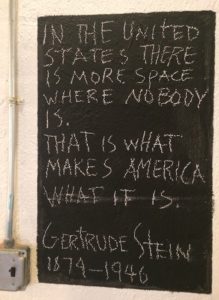 IN THE UNITED
STATES THERE
IS MORE SPACE
WHERE NOBODY
IS.
THAT IS WHAT
MAKES AMERICA
WHAT IT IS.
GERTRUDE STEIN
1874-1946